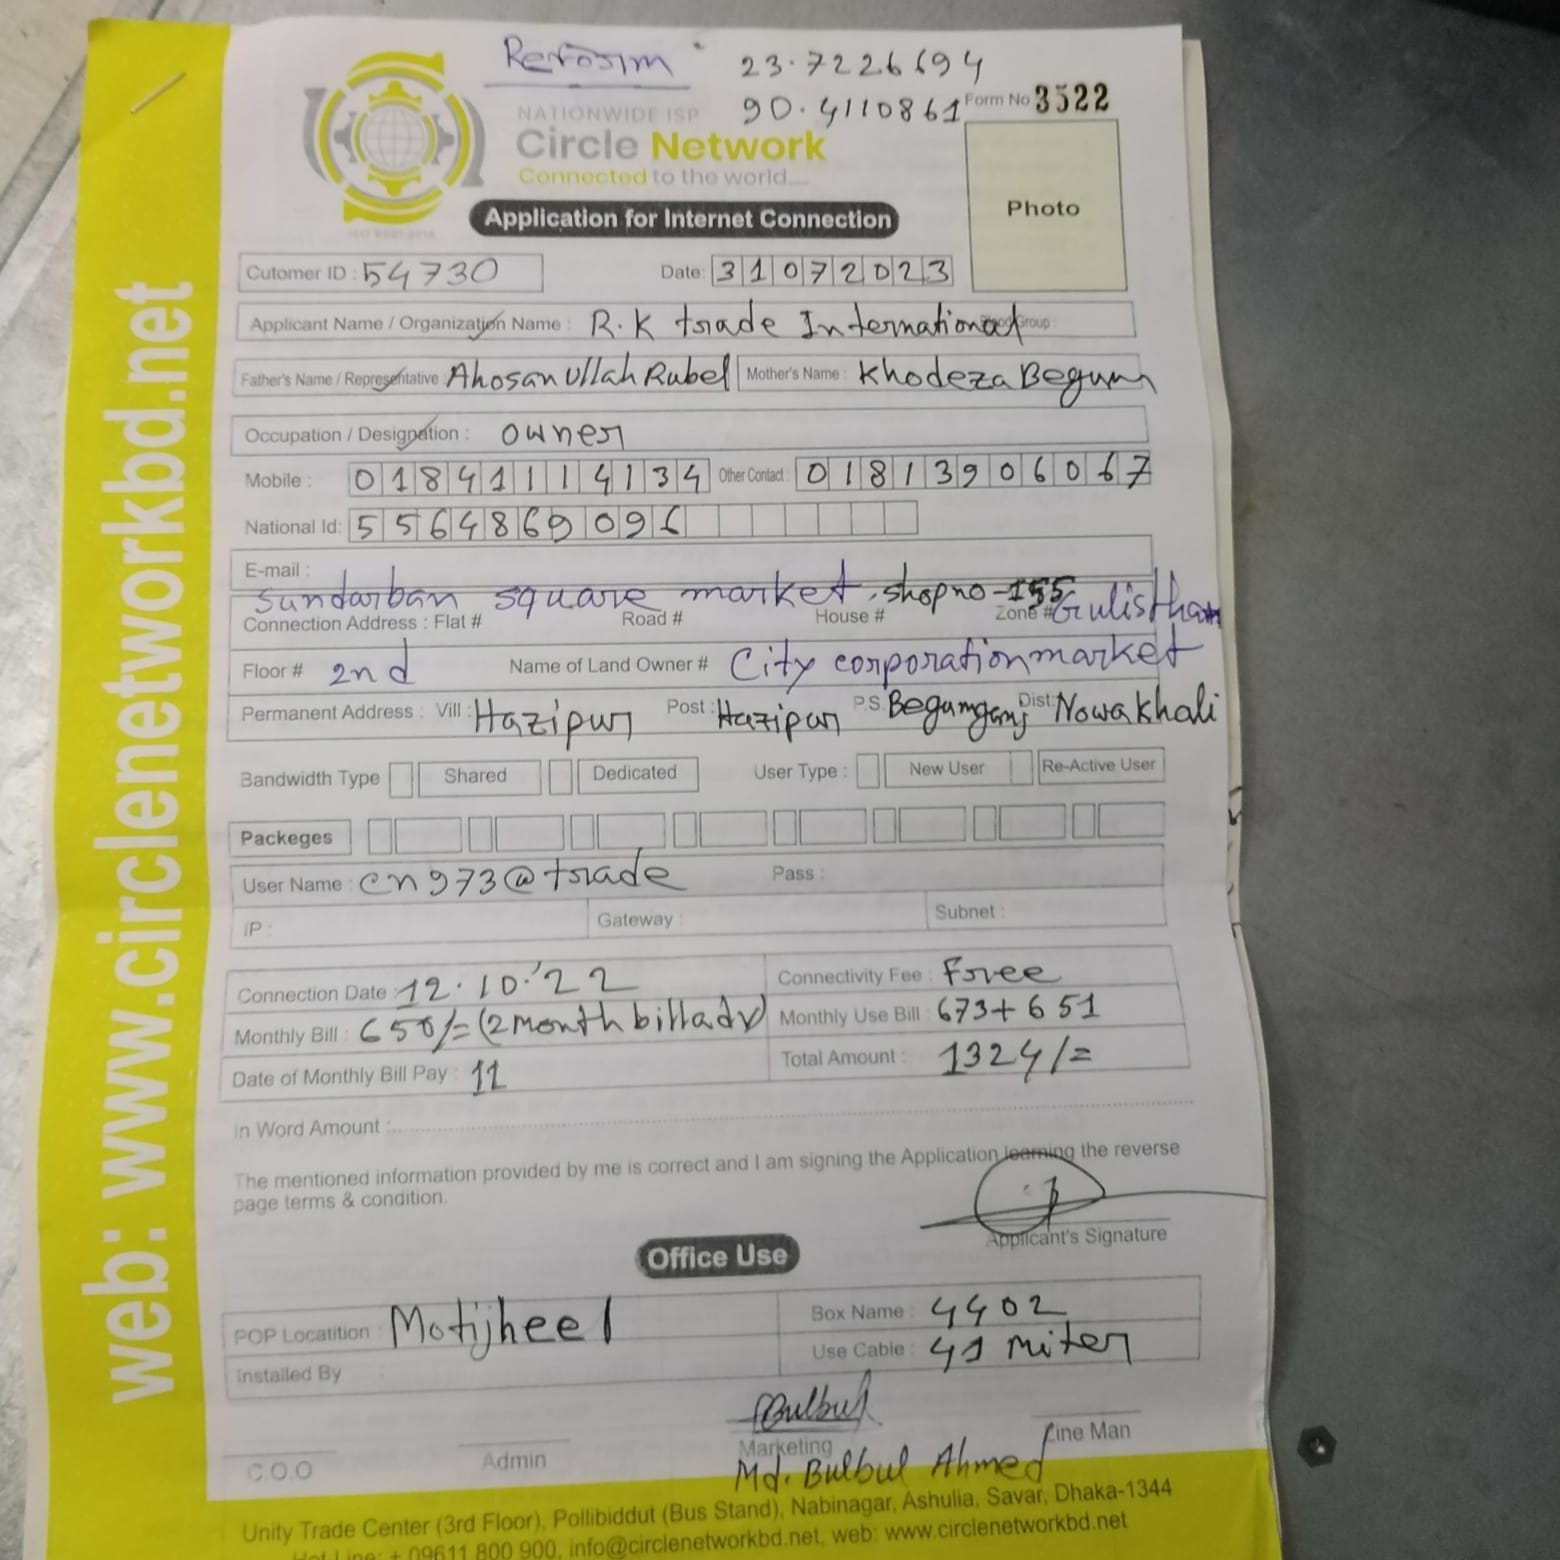 Reform
23.7226694
90.4110861
Form No 3522
NATIONWIDE ISP
Circle Network
Connected to the world....
Photo
Application for Internet Connection
Cutomer ID : 54730 Date: 31072023
Applicant Name / Organization Name : R.K trade International Group :
Father's Name / Representative : Ahosan Ullah Rubel Mother's Name : Khodeza Begum
Occupation / Designation : owner
Mobile : 01841114134 Other Contact : 01813906067
National Id: 5564869096
E-mail :
Sundarban square market, shop no-155 Gulisthan
Connection Address : Flat # Road # House # Zone #
Floor # 2nd Name of Land Owner # City corporation market
Permanent Address : Vill : Hazipur Post : Hazipur P.S. Begumganj Dist: Nowakhali
Bandwidth Type Shared Dedicated User Type : New User Re-Active User
Packeges
User Name : cn973@trade Pass :
IP : Gateway : Subnet :
Connection Date : 12.10.'22 Connectivity Fee : Free
Monthly Bill : 650/= (2 month bill adv) Monthly Use Bill : 673+651
Date of Monthly Bill Pay : 11 Total Amount : 1324/=
in Word Amount :
The mentioned information provided by me is correct and I am signing the Application learning the reverse
page terms & condition.
Applicant's Signature
Office Use
POP Locatition : Motijheel Box Name : 4402
Use Cable : 41 miter
Installed By
Bulbul
C.O.O Admin Marketing Line Man
Md. Bulbul Ahmed
Unity Trade Center (3rd Floor), Pollibiddut (Bus Stand), Nabinagar, Ashulia, Savar, Dhaka-1344
Hot Line: + 09611 800 900, info@circlenetworkbd.net, web: www.circlenetworkbd.net
web: www.circlenetworkbd.net